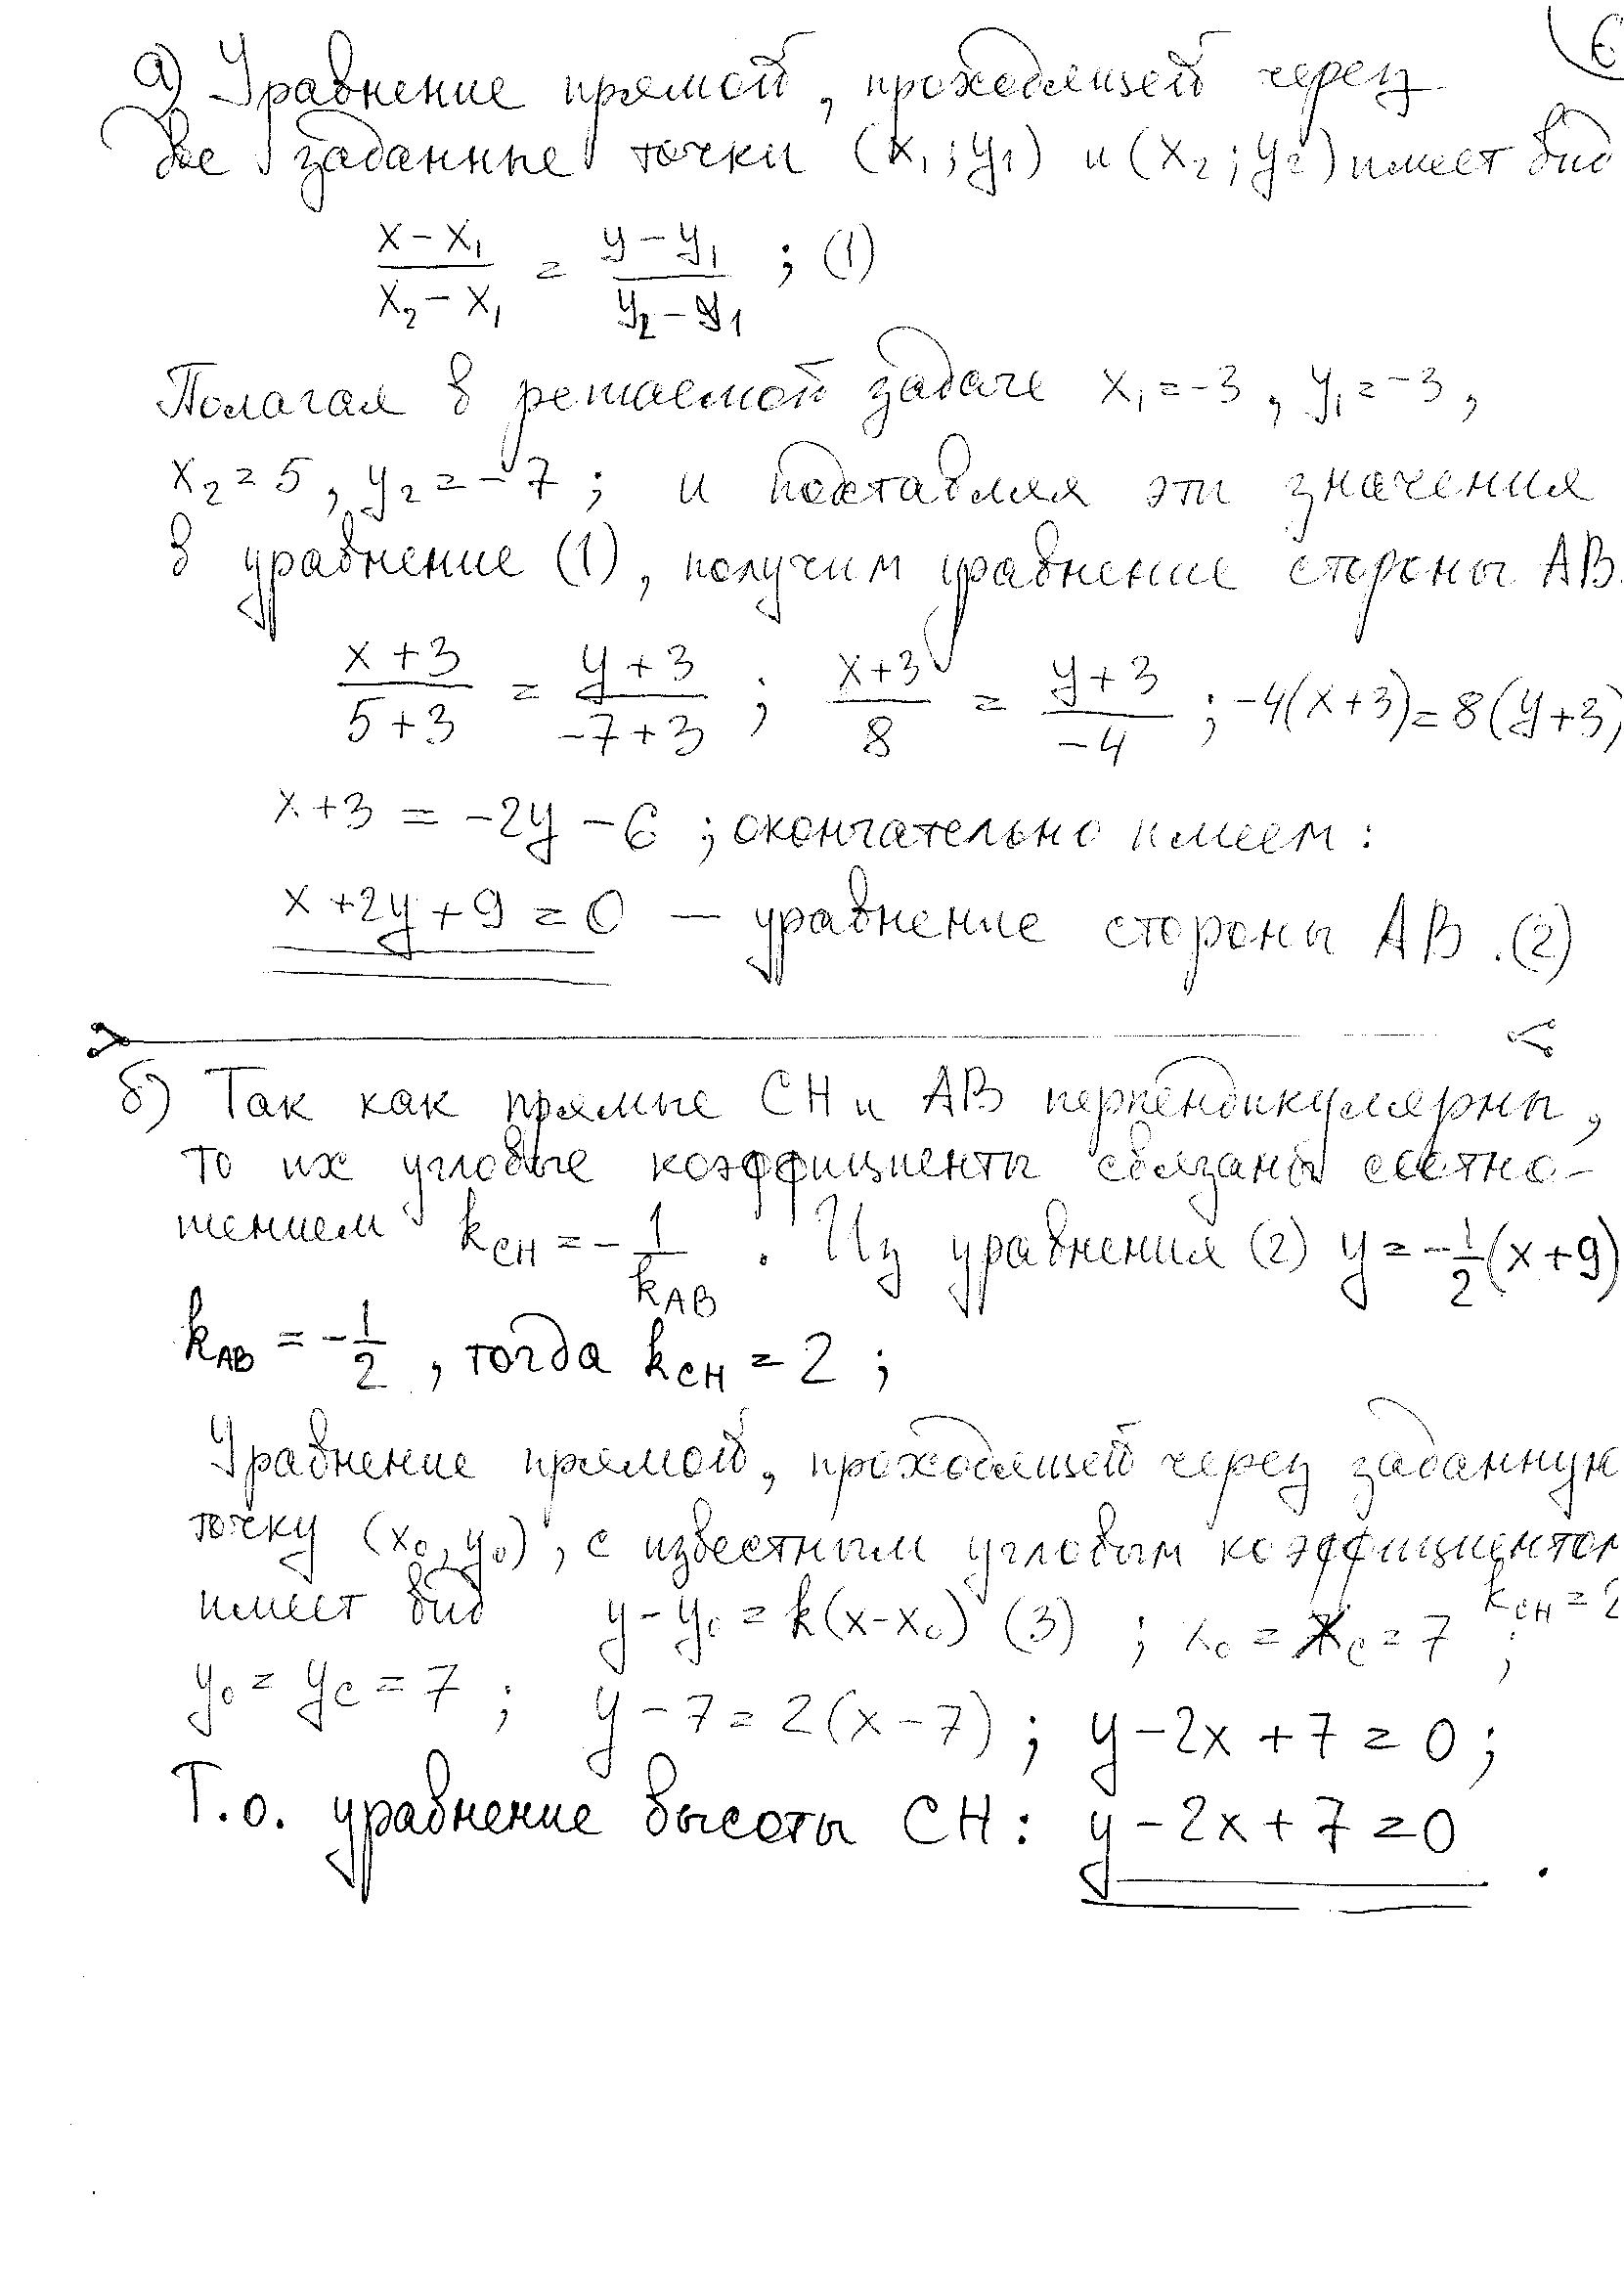 а) Уравнение прямой, проходящей через
две заданные точки (x₁; y₁) и (x₂; y₂) имеет вид
(x − x₁)/(x₂ − x₁) = (y − y₁)/(y₂ − y₁) ; (1)
Полагая в решаемой задаче x₁ = −3, y₁ = −3,
x₂ = 5, y₂ = −7; и подставляя эти значения
в уравнение (1), получим уравнение стороны AB.
(x + 3)/(5 + 3) = (y + 3)/(−7 + 3) ; (x + 3)/8 = (y + 3)/(−4) ; −4(x + 3) = 8(y + 3)
x + 3 = −2y − 6 ; окончательно имеем:
x + 2y + 9 = 0 — уравнение стороны AB. (2)
б) Так как прямые CH и AB перпендикулярны,
то их угловые коэффициенты связаны соотно-
шением k_CH = −1/k_AB . Из уравнения (2) y = −1/2(x + 9)
k_AB = −1/2, тогда k_CH = 2 ;
Уравнение прямой, проходящей через заданную
точку (x₀, y₀), с известным угловым коэффициентом
имеет вид y − y₀ = k(x − x₀) (3) ; x₀ = x_C = 7 ; k_CH = 2
y₀ = y_C = 7 ; y − 7 = 2(x − 7) ; y − 2x + 7 = 0 ;
Т.о. уравнение высоты CH: y − 2x + 7 = 0 .